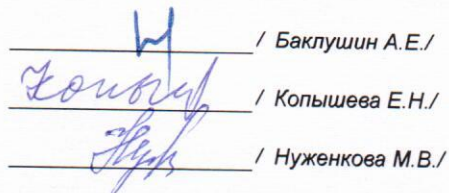 / Баклушин А.Е./
/ Копышева Е.Н./
/ Нуженкова М.В./